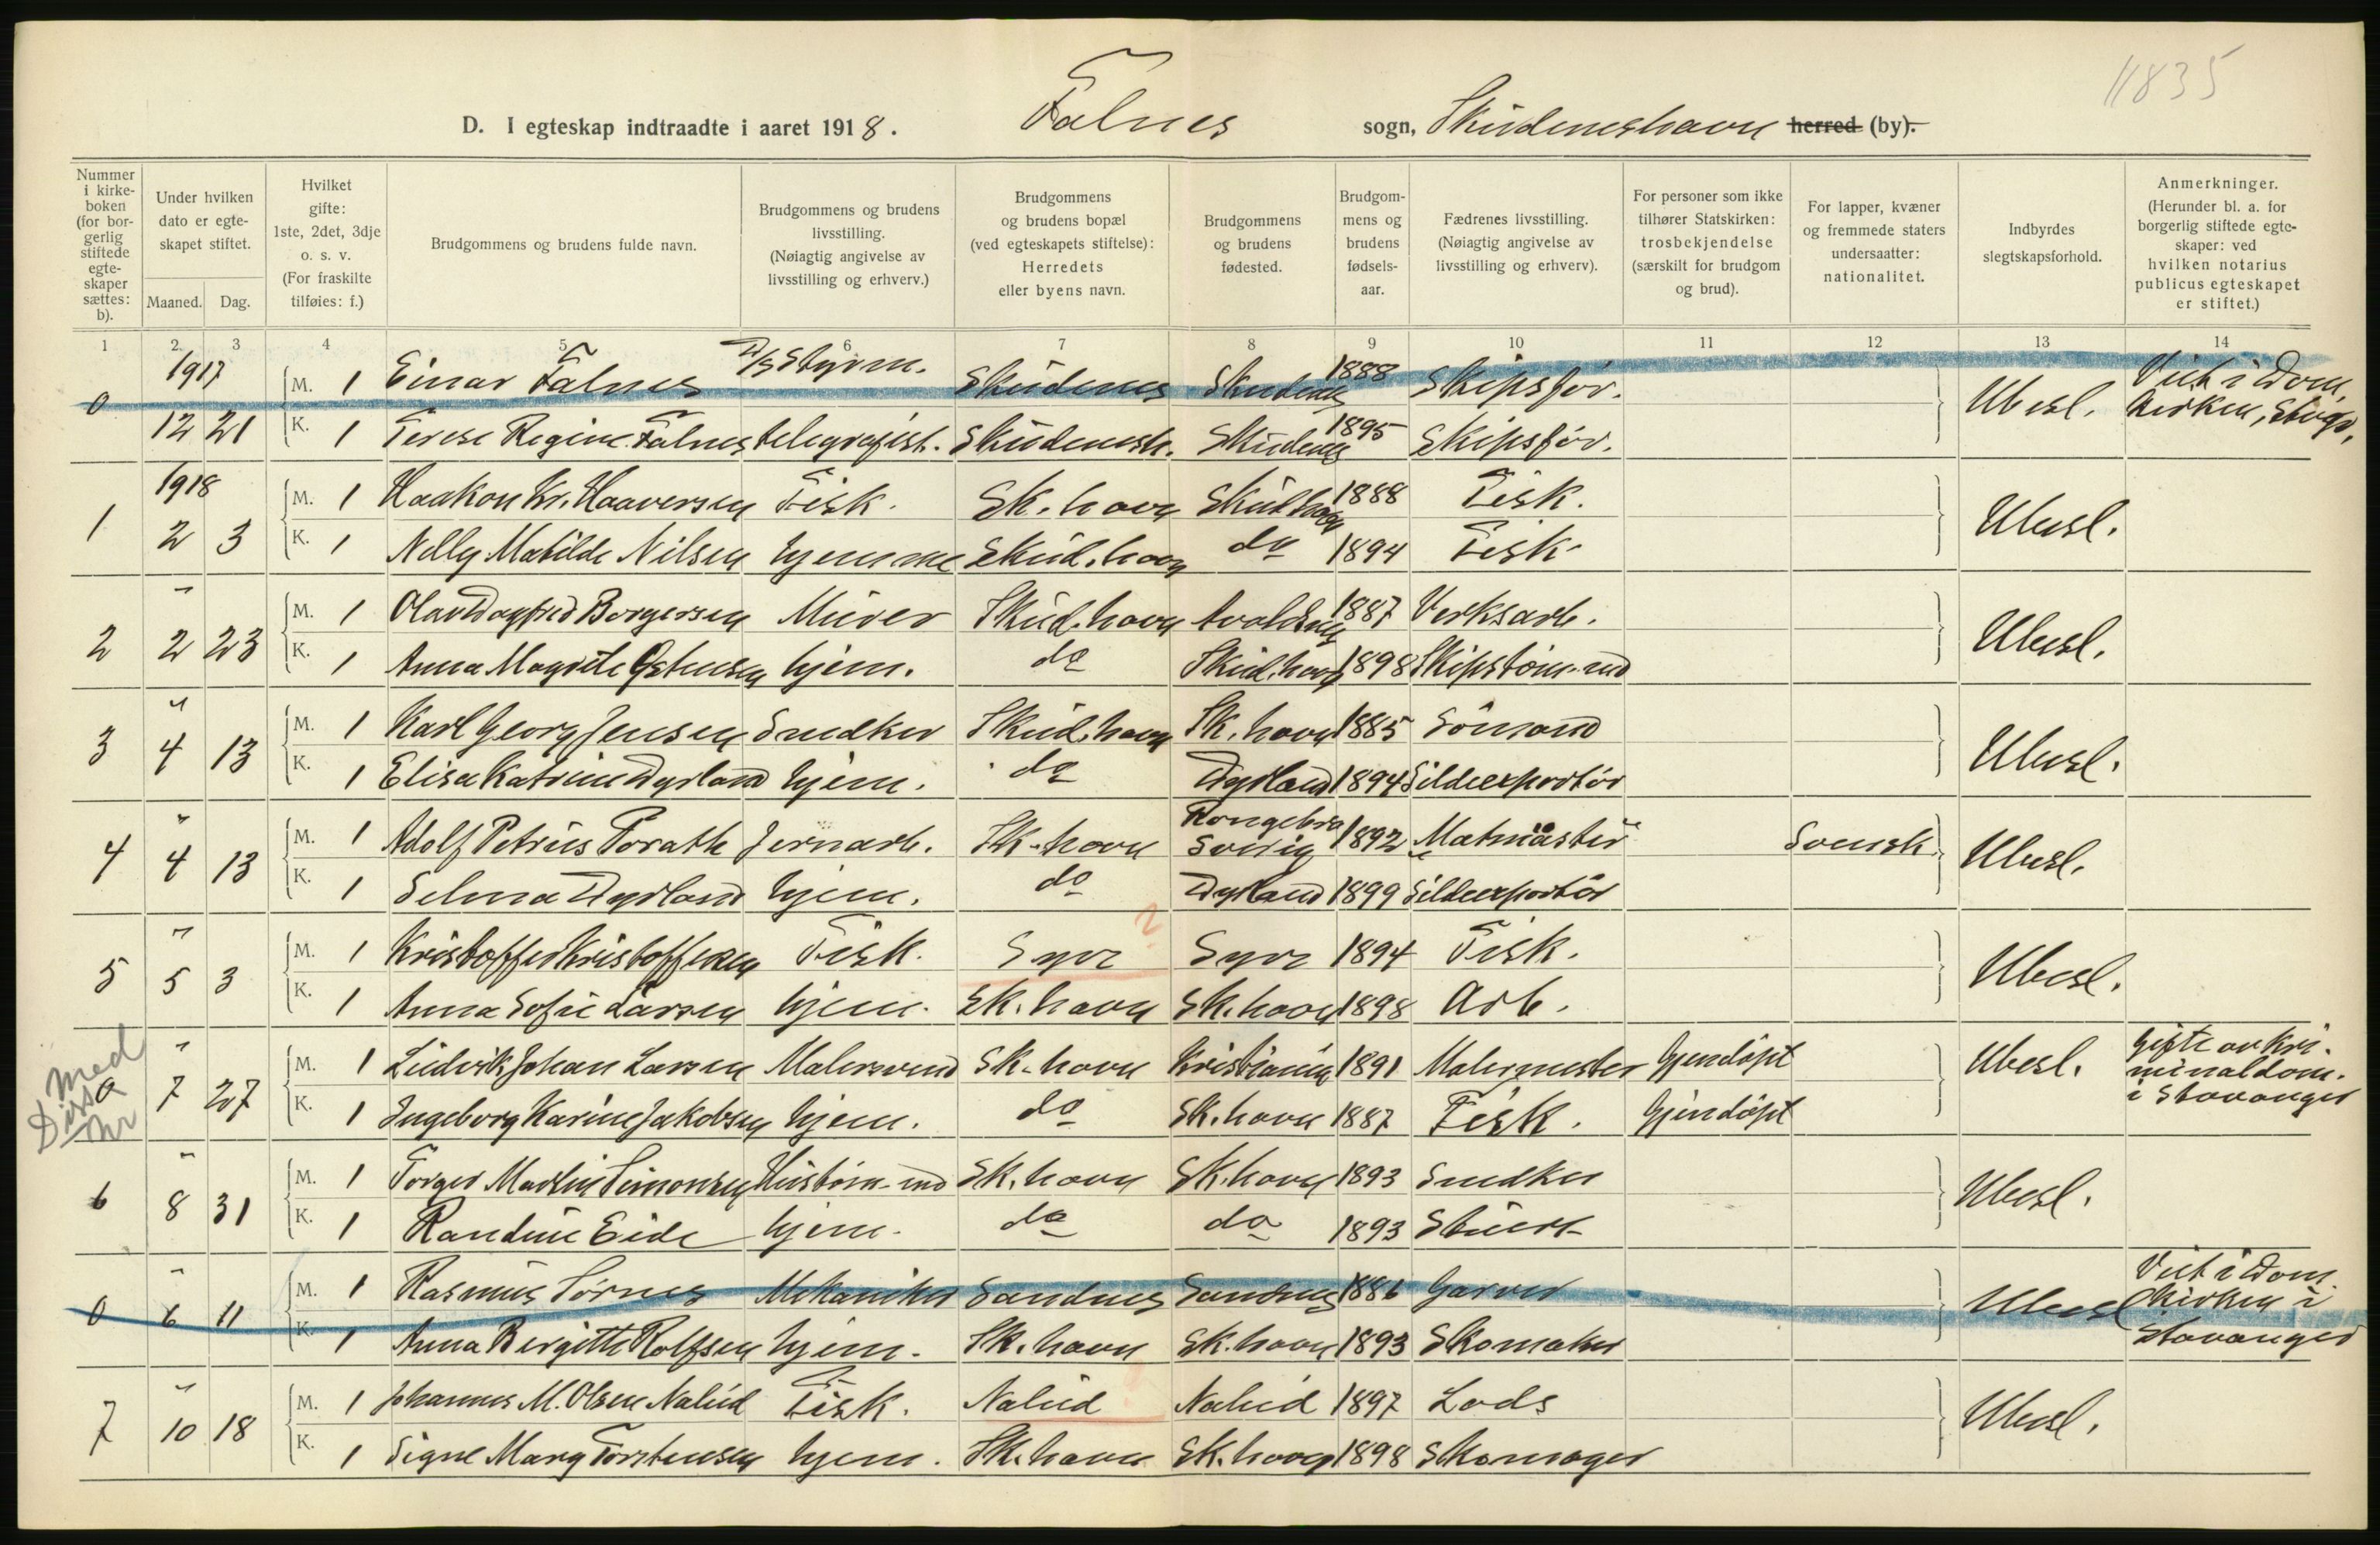 11835
D. I egteskap indtraadte i aaret 1918. Falnes sogn, Skudeneshavn herred (by).
Nummer i kirkeboken (for borgerlig stiftede egteskaper sættes: b).
Under hvilken dato er egteskapet stiftet.
Maaned. Dag.
Hvilket gifte: 1ste, 2det, 3dje o. s. v. (For fraskilte tilføies: f.)
Brudgommens og brudens fulde navn.
Brudgommens og brudens livsstilling. (Nøiagtig angivelse av livsstilling og erhverv.)
Brudgommens og brudens bopæl (ved egteskapets stiftelse): Herredets eller byens navn.
Brudgommens og brudens fødested.
Brudgommens og brudens fødselsaar.
Fædrenes livsstilling. (Nøiagtig angivelse av livsstilling og erhverv).
For personer som ikke tilhører Statskirken: trosbekjendelse (særskilt for brudgom og brud).
For lapper, kvæner og fremmede staters undersaatter: nationalitet.
Indbyrdes slegtskapsforhold.
Anmerkninger. (Herunder bl. a. for borgerlig stiftede egteskaper: ved hvilken notarius publicus egteskapet er stiftet.)
1 2 3 4 5 6 7 8 9 10 11 12 13 14
1917 M. 1 Einar Falnes D/S Styrm. Skudenes Skudenes 1888 Skipsfør. Ubesl. Viet i Dom
0 12 21 K. 1 Terese Regine Falnes telegrafist. Skudenesh. Skudenes 1895 Skipsfør. kirken, Stvgr,
1918 M. 1 Haakon Kr. Haaversen Fisk. Sk. havn Skudhavn 1888 Fisk. Ubesl.
1 2 3 K. 1 Nelly Matilde Nilsen hjemme Skud. havn do 1894 Fisk.
" M. 1 Olav Dagfred Borgersen Murer Skud. havn Avaldsnes 1887 Verksarb. Ubesl.
2 2 23 K. 1 Anna Magrete Ostensen hjem. do Skud. havn 1898 Skipstøm.md
" M. 1 Karl Georg Jensen Snedker Skud. havn Sk. havn 1885 Sömand Ubesl.
3 4 13 K. 1 Elise Katrine Dyrland hjem. do Dyrland 1894 Sildeexportør
" M. 1 Adolf Petrus Porath Jernarb. Sk. havn Sverig 1892 Svensk Ubesl.
4 4 13 K. 1 Selma Dyrland hjem. do Dyrland 1899 Sildeexportör
" M. 1 Kristoffer Kristoffersen Fisk. Syre ? Syre 1894 Fisk. Ubesl.
5 5 3 K. 1 Anna Sofie Larsen hjem. Sk. havn Sk. havn 1898 Arb.
" M. 1 Ludvik Johan Larsen Malersvend Sk. havn Kristiania 1891 Malermester Gjendöpt Ubesl. Gifte av Kri-
minaldom.
0 7 27 K. 1 Ingeborg Karine Jakobsen hjem. do Sk. havn 1887 Fisk. Gjendöpt i Stavanger
med
Diss
nr
" M. 1 Torger Martin Simonsen Hustöm.md Sk. havn Sk. havn 1893 Snedker Ubesl.
6 8 31 K. 1 Randine Eide hjem. do do 1893 Stuert
" M. 1 Rasmus Törnes Mekaniker Sandnes Sandnes 1886 Garver Ubesl Viet i Dom
kirken i
0 6 11 K. 1 Anna Bergitte Rolfsen hjem. Sk. havn Sk. havn 1893 Skomaker Stavanger
" M. 1 Johannes M. Olsen Nalud Fisk. Nalud ? Nalud 1897 Lods Ubesl.
7 10 18 K. 1 Signe Marg Torstensen hjem. Sk. havn Sk. havn 1898 Skomager